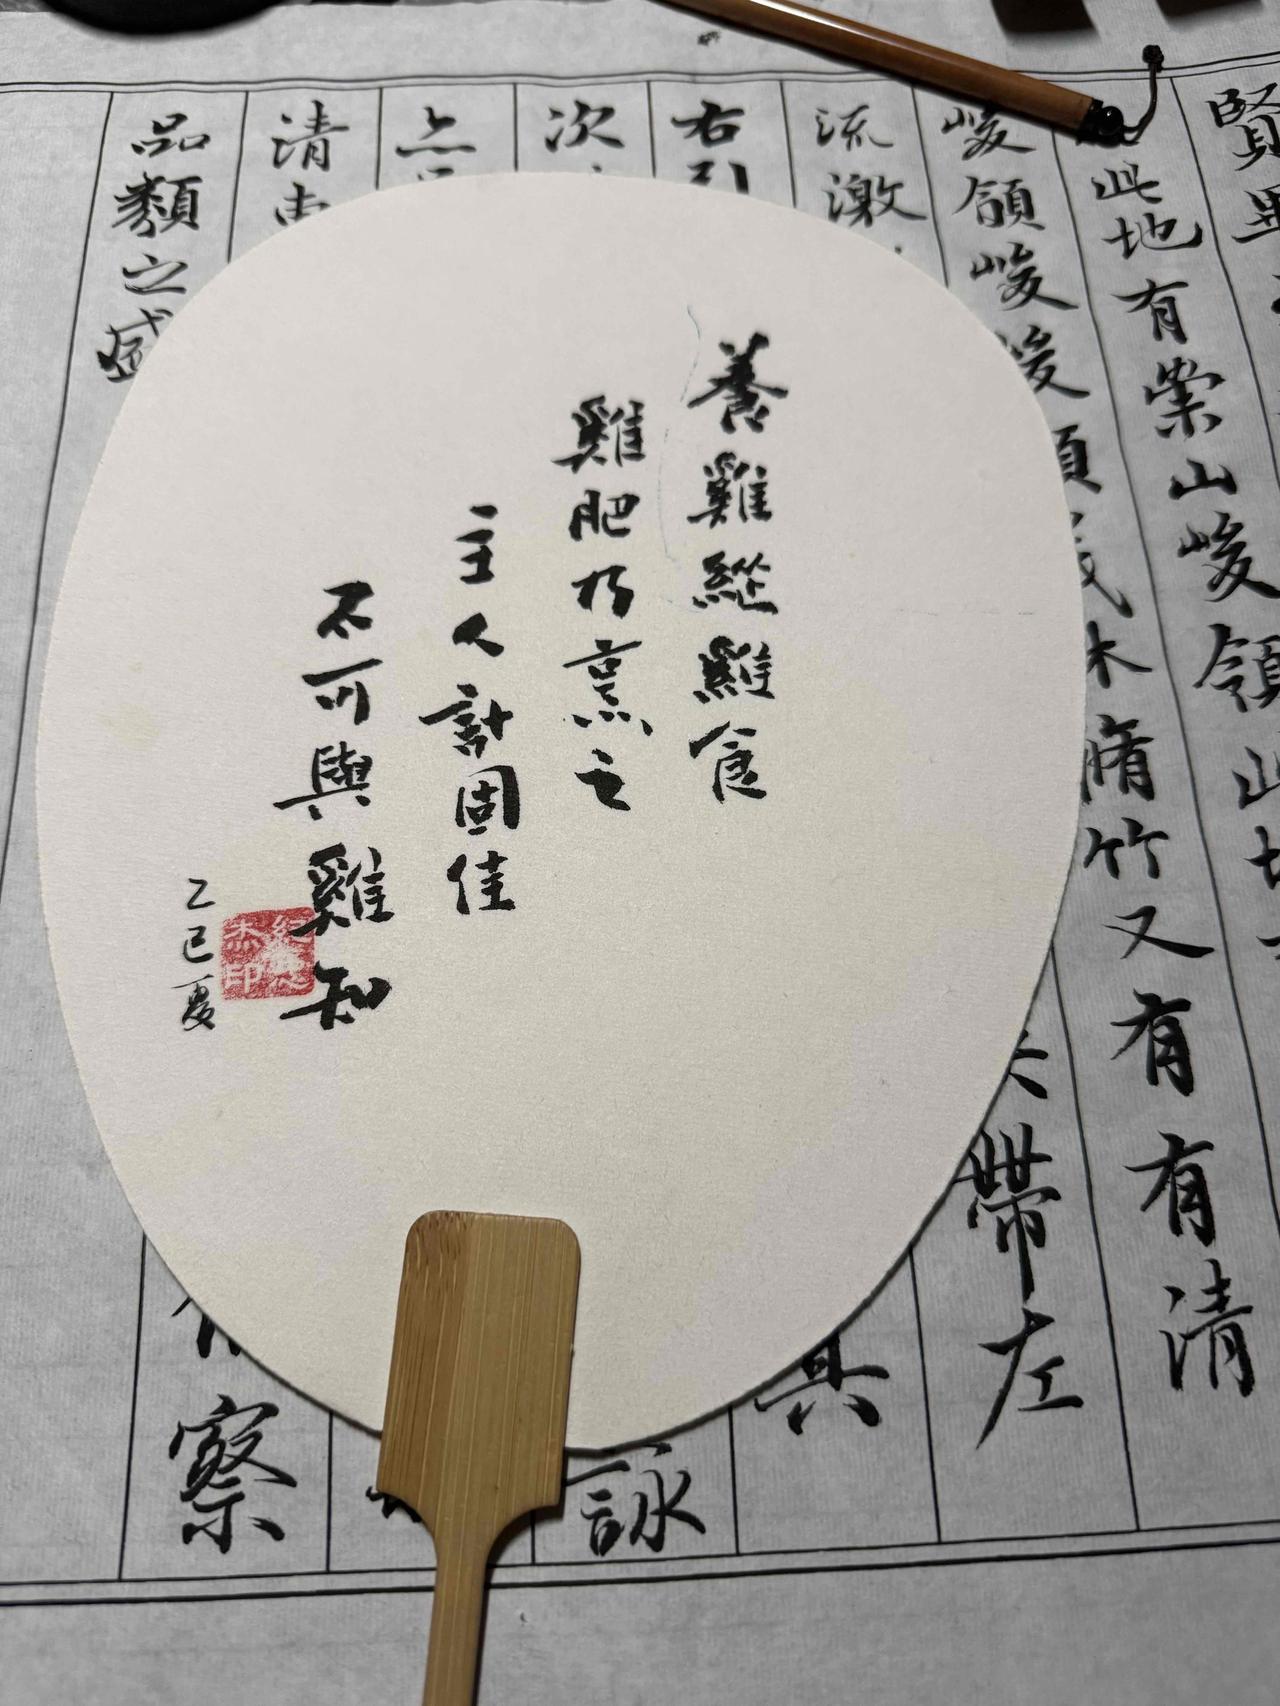 養雞縱雞食
雞肥乃烹之
主人計固佳
不可與雞知
乙巳夏
賢畢
此地有崇山峻領此地
峻領峻峻領茂林脩竹又有有清
流激
帶左
右引
其
次
詠
清
品類之盛
察